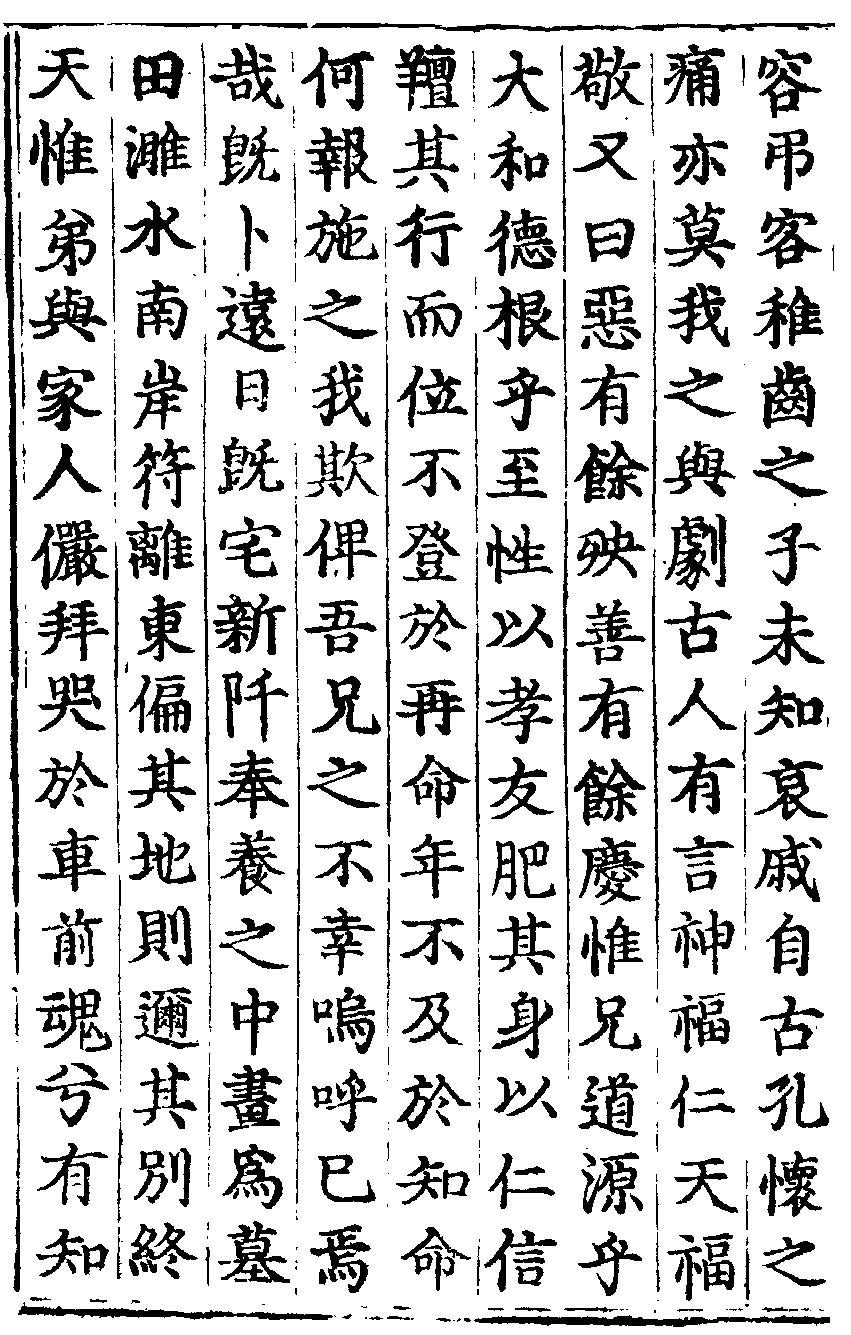 容弔客稚齒之子未知哀戚自古孔懷之
痛亦莫我之與劇古人有言神福仁天福
敬又曰惡有餘殃善有餘慶惟兄道源乎
大和德根乎至性以孝友肥其身以仁信
羶其行而位不登於再命年不及於知命
何報施之我欺俾吾兄之不幸嗚呼已焉
哉既卜遠日既宅新阡奉養之中畫為墓
田濉水南岸符離東偏其地則邇其別終
天惟弟與家人儼拜哭於車前魂兮有知